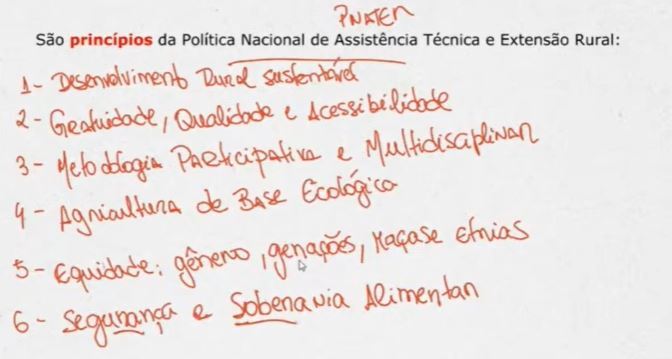 PNATER
São princípios da Política Nacional de Assistência Técnica e Extensão Rural:
1- Desenvolvimento Rural sustentável
2- Gratuidade, Qualidade e Acessibilidade
3- Metodologia Participativa e Multidisciplinar
4- Agricultura de Base Ecológica
5- Equidade: gênero, gerações, Raças e etnias
6- Segurança e Soberania Alimentar